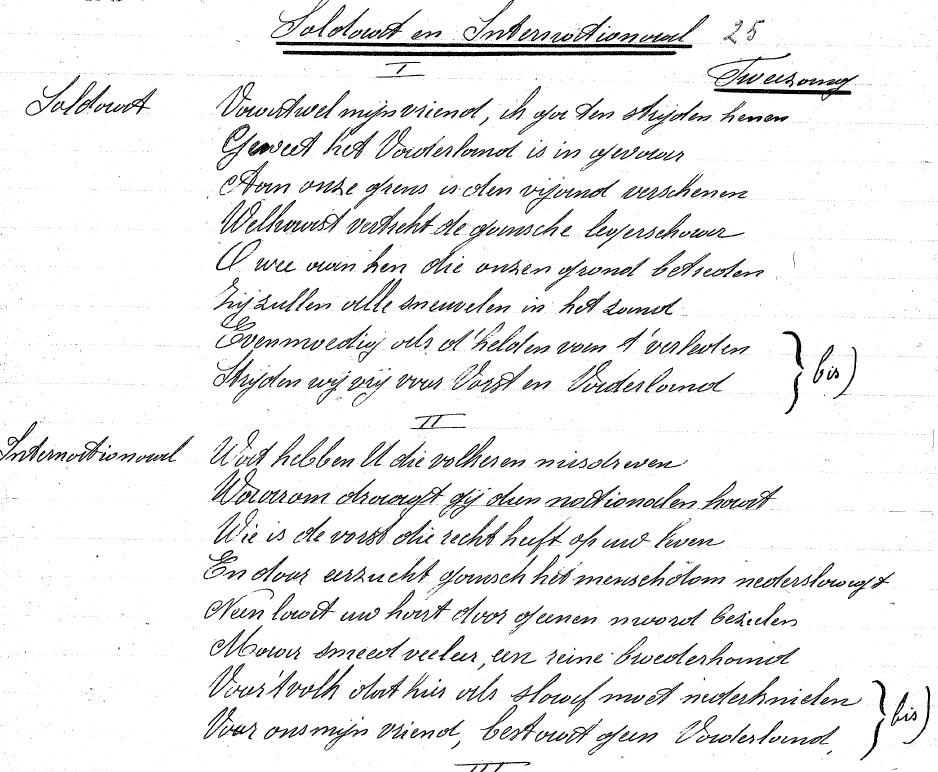 Soldaat en Internationaal 25
I
Tweezang
Soldaat Vaartwel mijn vriend, ik ga ten strijden henen
Geweet het Vaderland is in gevaar
Aan onze grens is den vijand verschenen
Welhaast vertrekt de gansche legerschaar
O wee aan hen die onzen grond betreden
Zij zullen alle sneuvelen in het zand
Evenmoedig als d'helden van t' verleden
Strijden wij vrij voor Vorst en Vaderland } bis)
II
Internationaal Wat hebben U die volkeren misdreven
Waarom draagt gij dien nationalen haat
Wie is de vorst die recht heeft op uw leven
En door eerzucht gansch het menschdom nederslaagt
Neen laat uw hart door geenen moord bezielen
Maar smeed veeleer, een reine broederhand
Voor't volk dat hier als slaaf moet nederknielen
Voor ons mijn vriend, bestaat geen Vaderland, } bis)
III